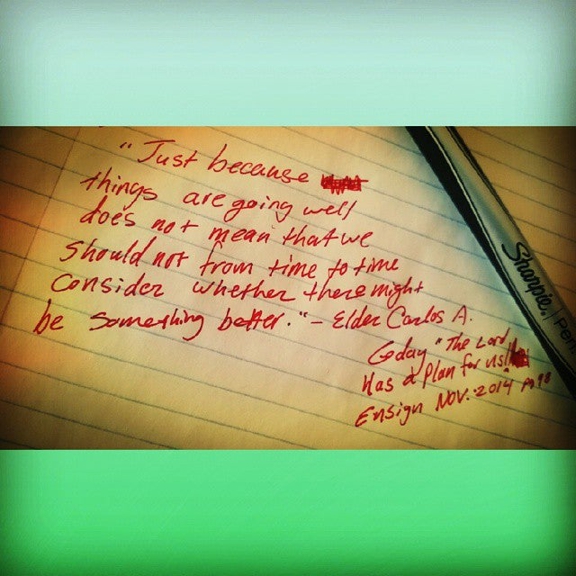 "Just because
things are going well
does not mean that we
should not from time to time
consider whether there might
be something better." - Elder Carlos A.
Goday "The Lord
Has a Plan for us!"
Ensign Nov. 2014 Pg 98
Sharpie. Pen